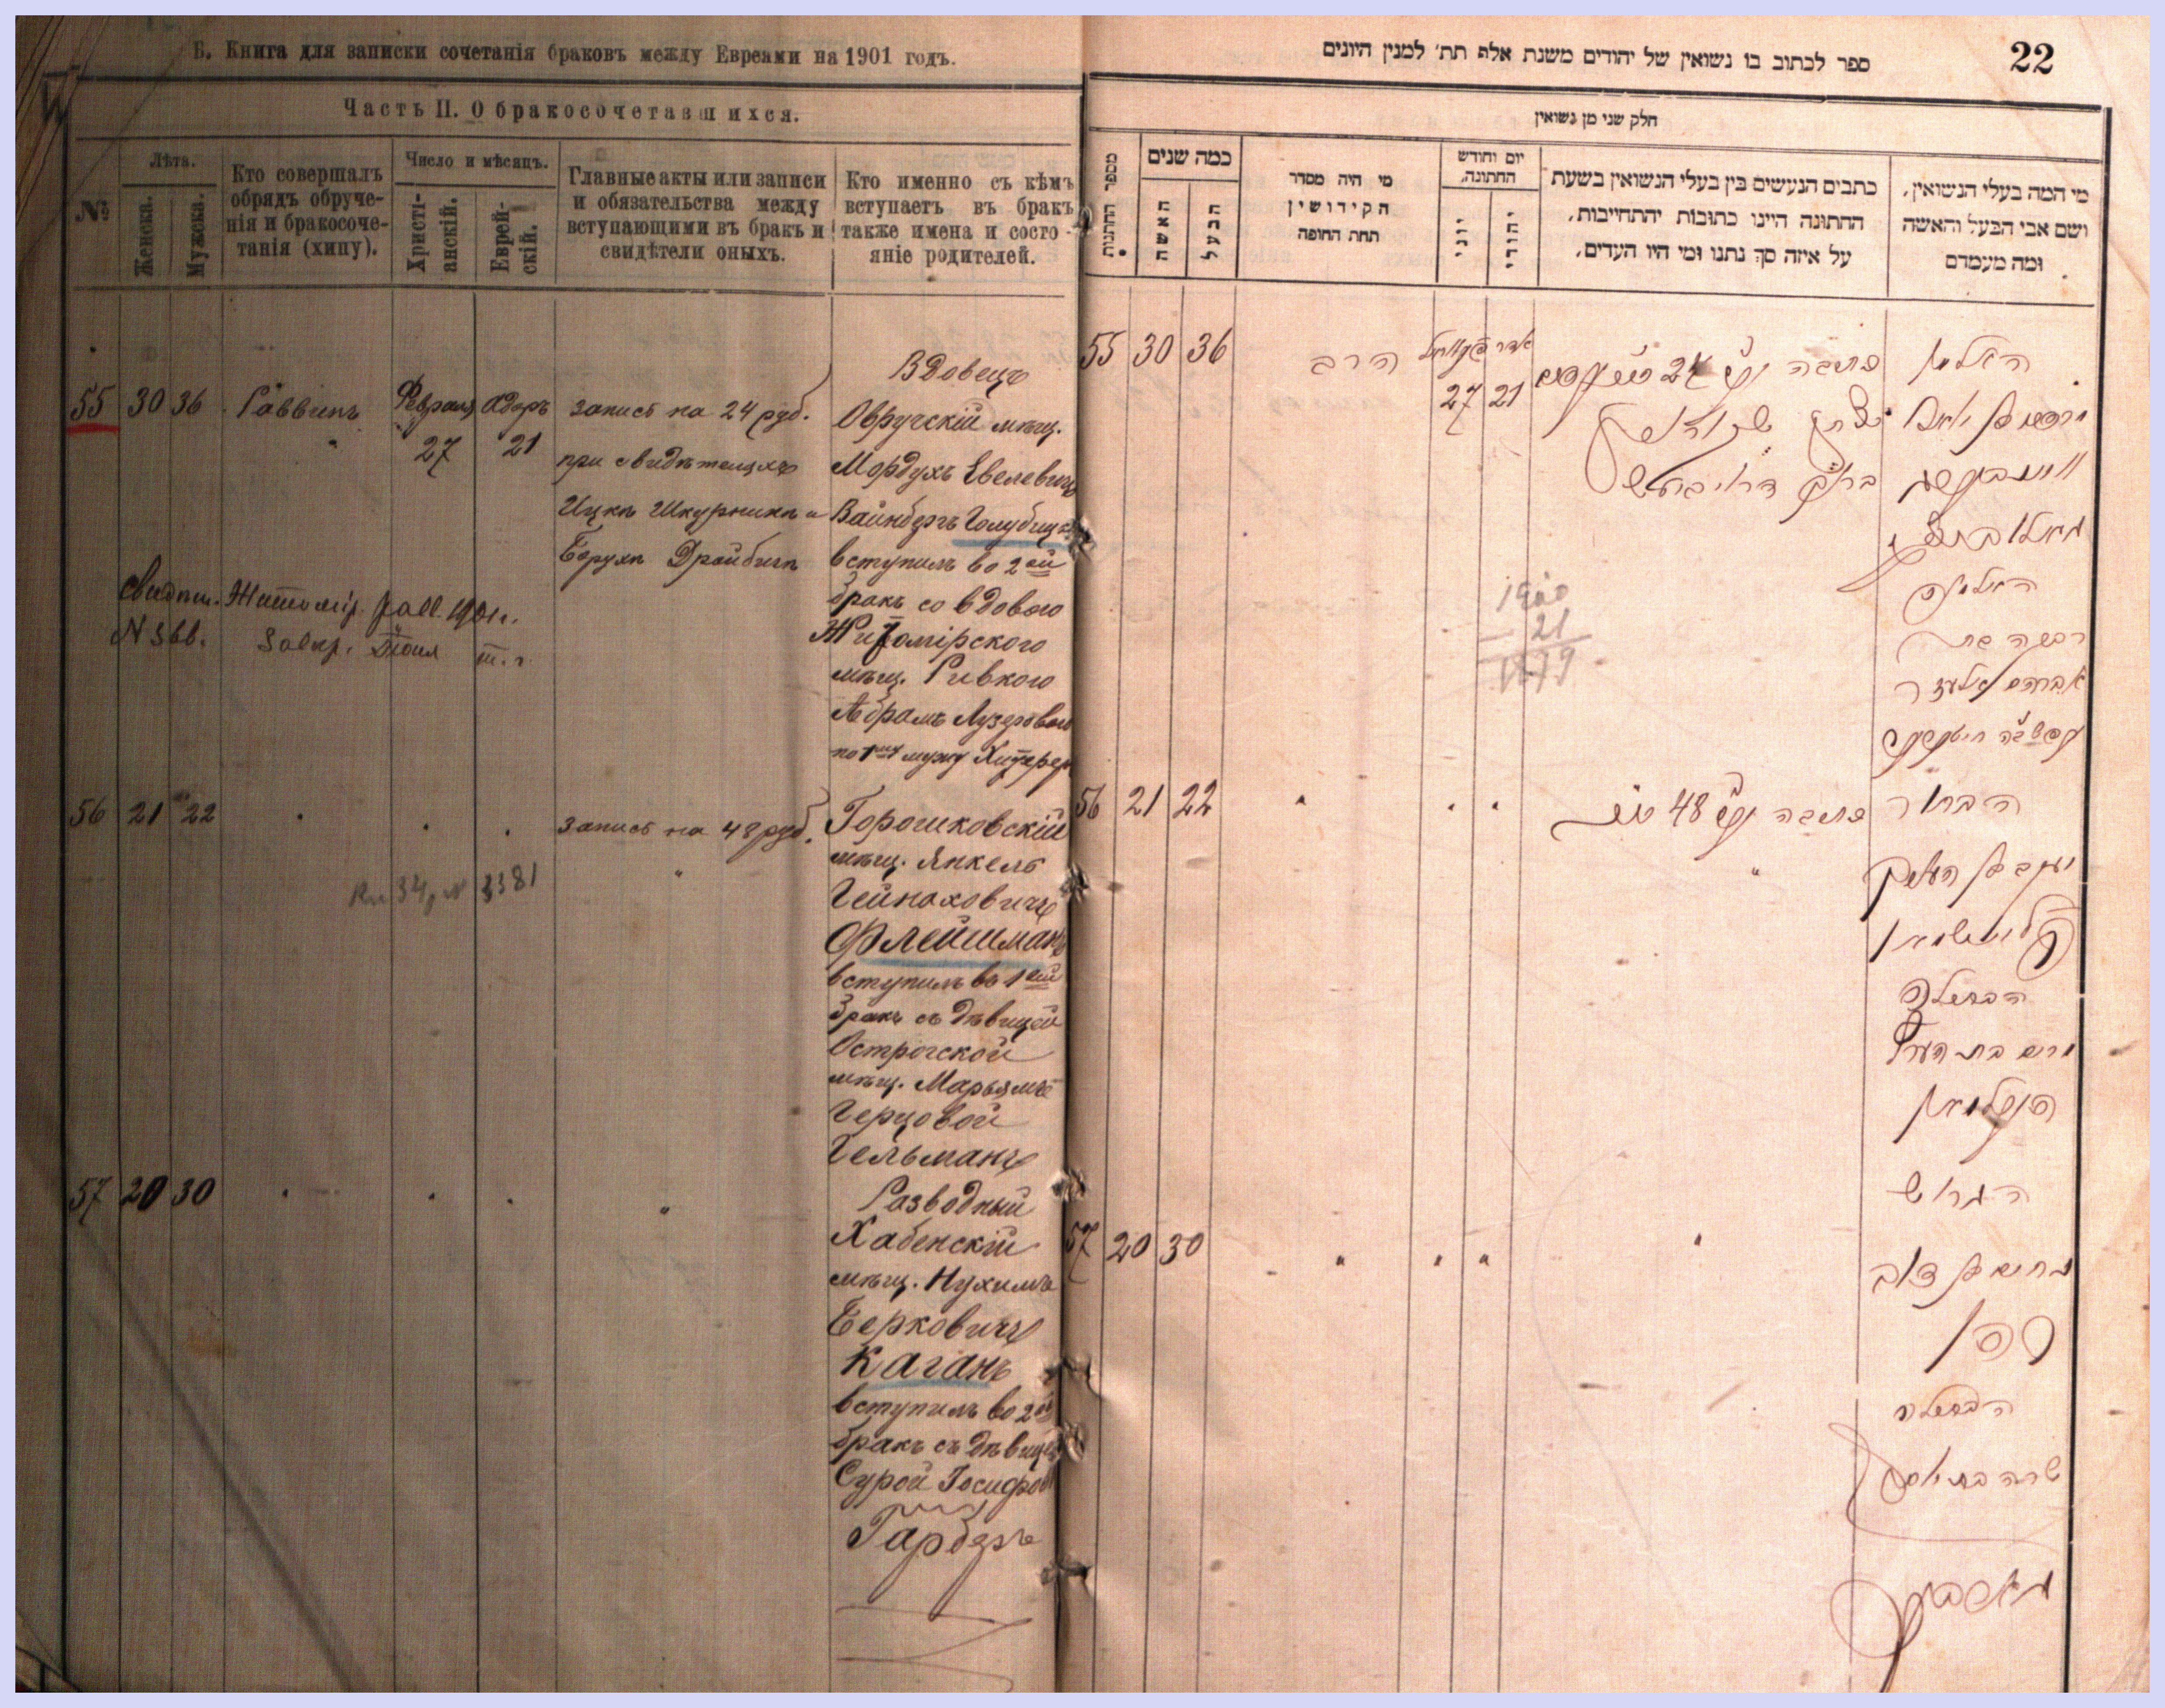 Б. Книга для записки сочетанія браковъ между Евреями на 1901 годъ.
Часть II. О бракосочетавшихся.
№
Лѣта.
Женска.
Мужска.
Кто совершалъ
обрядъ обруче-
нія и бракосоче-
танія (хипу).
Число и мѣсяцъ.
Христі-
анскій.
Еврей-
скій.
Главные акты или записи
и обязательства между
вступающими въ бракъ и
свидѣтели оныхъ.
Кто именно съ кѣмъ
вступаетъ въ бракъ
также имена и состо-
яніе родителей.
55 30 36 Раввинъ Февраля Адаръ
27 21
запись на 24 руб.
при свидѣтеляхъ
Ицкѣ Шкурникѣ и
Борухѣ Дройбичѣ
Вдовецъ
Овручскій мѣщ.
Мордухъ Евелевичъ
Вайнбергъ Голубицкій
вступилъ во 2ой
бракъ со вдовою
Житомірского
мѣщ. Ривкою
Абрамъ Лузеровою
по 1му мужу
Свидѣт. Житомір. равв. 1901 г.
N 366.
56 21 22 " " "
запись на 48 руб.
"
Горошковскій
мѣщ. Янкель
Гейнаховичъ
Флейшманъ
вступилъ въ 1ый
бракъ съ дѣвицей
Острогской
мѣщ. Марьямъ
Герцовой
Гельманъ
34, N 3381
57 20 30 " " " "
Разводный
Хабенскій
мѣщ. Нухимъ
Берковичъ
Каганъ
вступилъ во 2ой
бракъ съ дѣвицей
Сурой Іосифов
Гарберъ
ספר לכתוב בו נשואין של יהודים משנת אלף תת׳ למנין היונים
22
חלק שני מן נשואין
מספר החתונות
כמה שנים
האשה
הבעל
מי היה מסדר
הקידושין
תחת החופה
יום וחודש
החתונה.
יוני
יהודי
כתבים הנעשים בין בעלי הנשואין בשעת
החתונה היינו כתובות יהתחייבות,
על איזה סך נתנו ומי היו העדים,
מי המה בעלי הנשואין,
ושם אבי הבעל והאשה
ומה מעמדם
55 30 36 הרב
אדר
27 21
כתובה 24
האלמן
האלמנה
רבקה בת
אברהם אליעזר
1900
21
1879
56 21 22 " " "
כתובה 48
"
הבחור
פליישמאן
הבתולה
מרים בת הערץ
העלמאן
57 20 30 " " " "
הגרוש
נחום בן דוב
כהן
הבתולה
שרה בת יוסף
גארבער